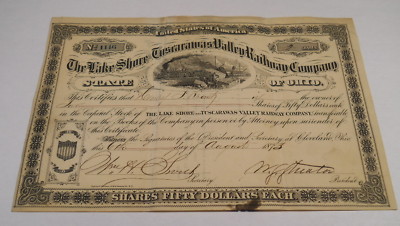 United States of America
The Lake Shore and Tuscarawas Valley Railway Company
STATE OF OHIO.
This Certifies that
is the owner
of Shares of Fifty Dollars each
in the Capital Stock of THE LAKE SHORE AND TUSCARAWAS VALLEY RAILWAY COMPANY, transferable
on the Books of the Company in person or by Attorney upon surrender of
this Certificate.
Witness the Signatures of the President and Secretary at Cleveland, Ohio
this day of August 187
Wm. H.
Secretary
President
SHARES FIFTY DOLLARS EACH